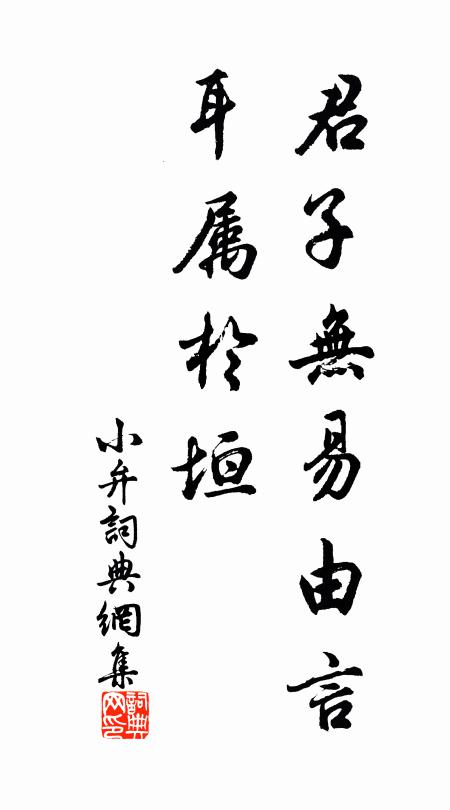 君子無易由言
耳属於垣
小弁詞典網集
詞典網印